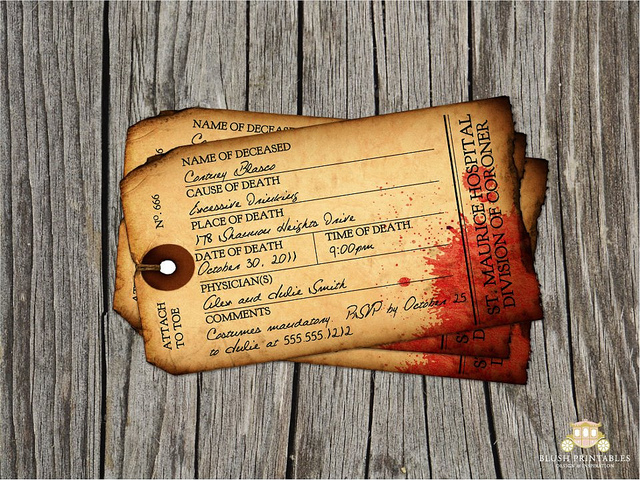 NAME OF DECEASED
NAME OF DECEASED
Cortney Blasco
CAUSE OF DEATH
Excessive Drinking
PLACE OF DEATH
178 Shannon Heights Drive
DATE OF DEATH
October 30, 2011
TIME OF DEATH
9:00pm
PHYSICIAN(S)
Alex and Julie Smith
COMMENTS
Costumes mandatory. RSVP by October 25
to Julie at 555.555.1212
Nº. 666
ATTACH
TO TOE
ST. MAURICE HOSPITAL
DIVISION OF CORONER
BLUSH PRINTABLES
DESIGN & INSPIRATION